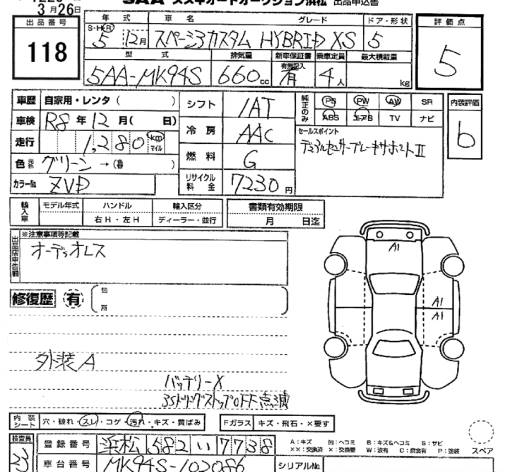 SAA スズキオートオークション浜松 出品申込書
3月26日
出品番号 118
年式 車名 グレード ドア・形状
S・H・R 5年 12月 スペーシアカスタム HYBRID XS 5
型式 排気量 新車保証書 乗車定員 最大積載量
5AA-MK94S 660cc 有 4人 kg
評価点 5
車歴 自家用・レンタ( )
車検 R8年12月( 日)
走行 1,280 km マイル
色 グリーン→( )
カラーNo ZVD
シフト IAT
冷房 AAC
燃料 G
リサイクル料金 7230円
純正のみ PS PW AW SR
ABS エアB TV ナビ
セールスポイント
デュアルセンサーブレーキサポートII
内装評価 b
輸入車 モデル年式 ハンドル 輸入区分
年 右H・左H ディーラー・並行
書類有効期限
月 日迄
※注意事項等記載
オーディオレス
修復歴 有 箇所
外装A
バッテリーX
A1
A1
A1
内装シート 穴・破れ・スレ・コゲ・汚れ・キズ・黄ばみ Fガラス キズ・飛石・X要す
登録番号 浜松 582 い 7738
車台番号 MK94S-102086
シリアルNo
A:キズ B:キズ&ヘコミ S:サビ
スペア